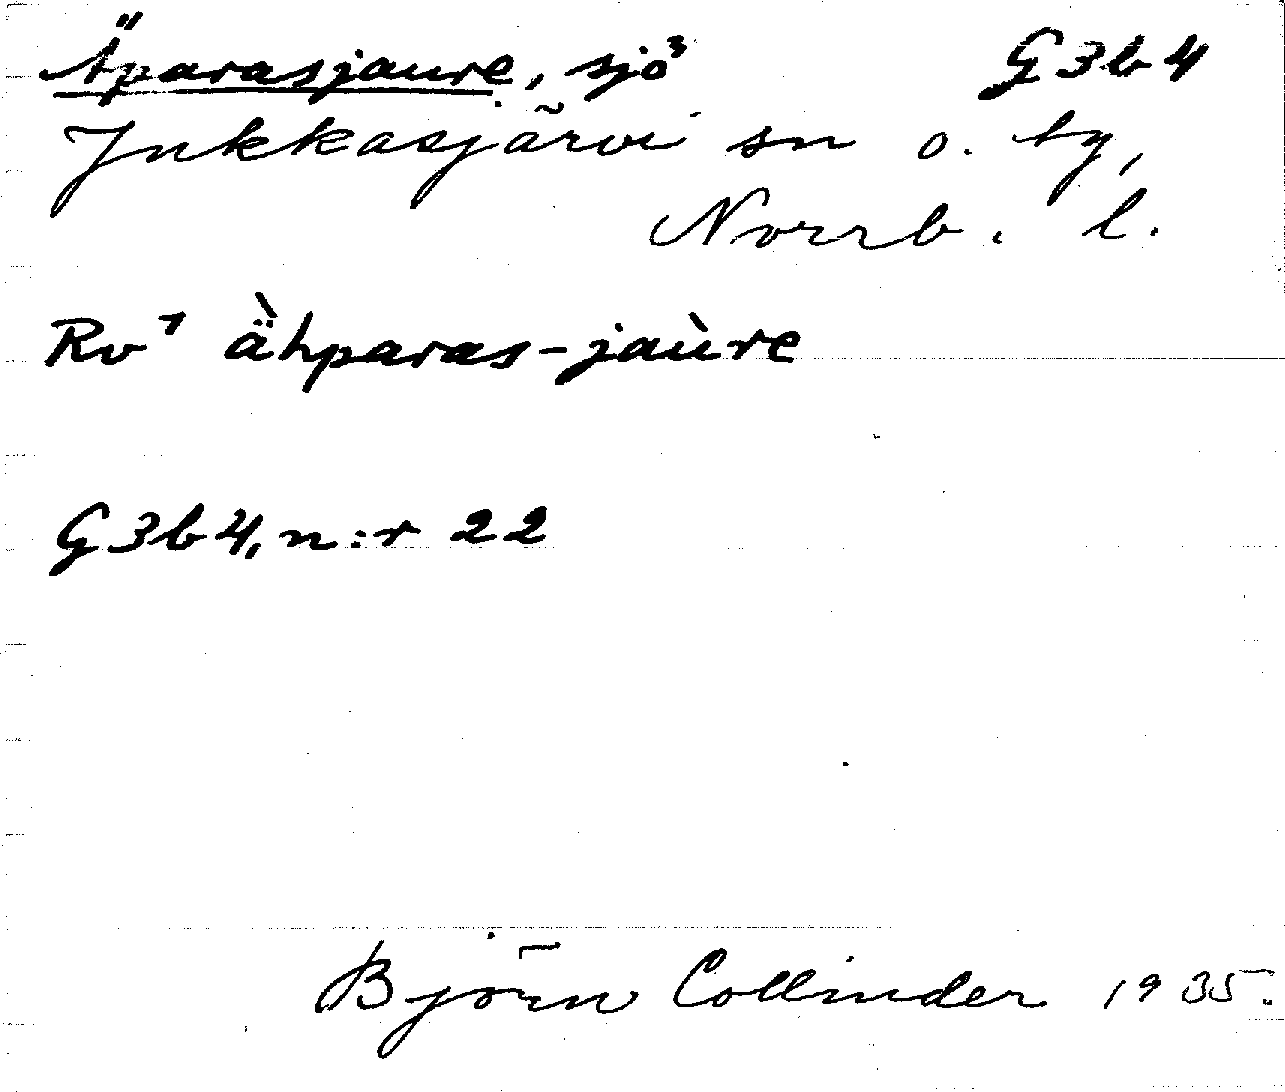 Äparasjaure, sjö G3b4
Jukkasjärvi sn o. tg,
Norrb. l.
Rv⁷ ä̀hparas-jaùre
G3b4, n:r 22
Björn Collinder 1935.